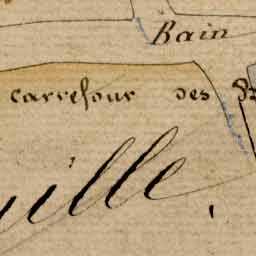 Bain
carrefour des
uille.